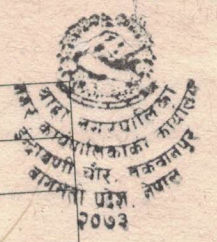 थाहा नगरपालिका
नगर कार्यपालिकाको कार्यालय
इन्द्रायणी चौर, मकवानपुर
बागमती प्रदेश, नेपाल
२०७३